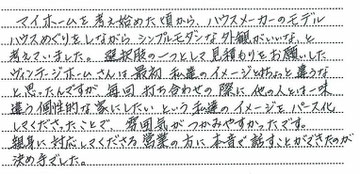 マイホームを考え始めた頃から、ハウスメーカーのモデル
ハウスめぐりをしながら、シンプルモダンな外観がいいな、と
考えていました。選択肢の一つとして見積もりをお願いした
ヴィンテージホームさんは最初 私達のイメージとちょっと違うな
と思ったんですが、毎回打ち合わせの際に他の人とは一味
違う個性的な家にしたいという私達のイメージを、パース化
してくださったことで 雰囲気がつかみやすかったです。
親身に対応してくださる営業の方に本音で話すことができたのが
決め手でした。